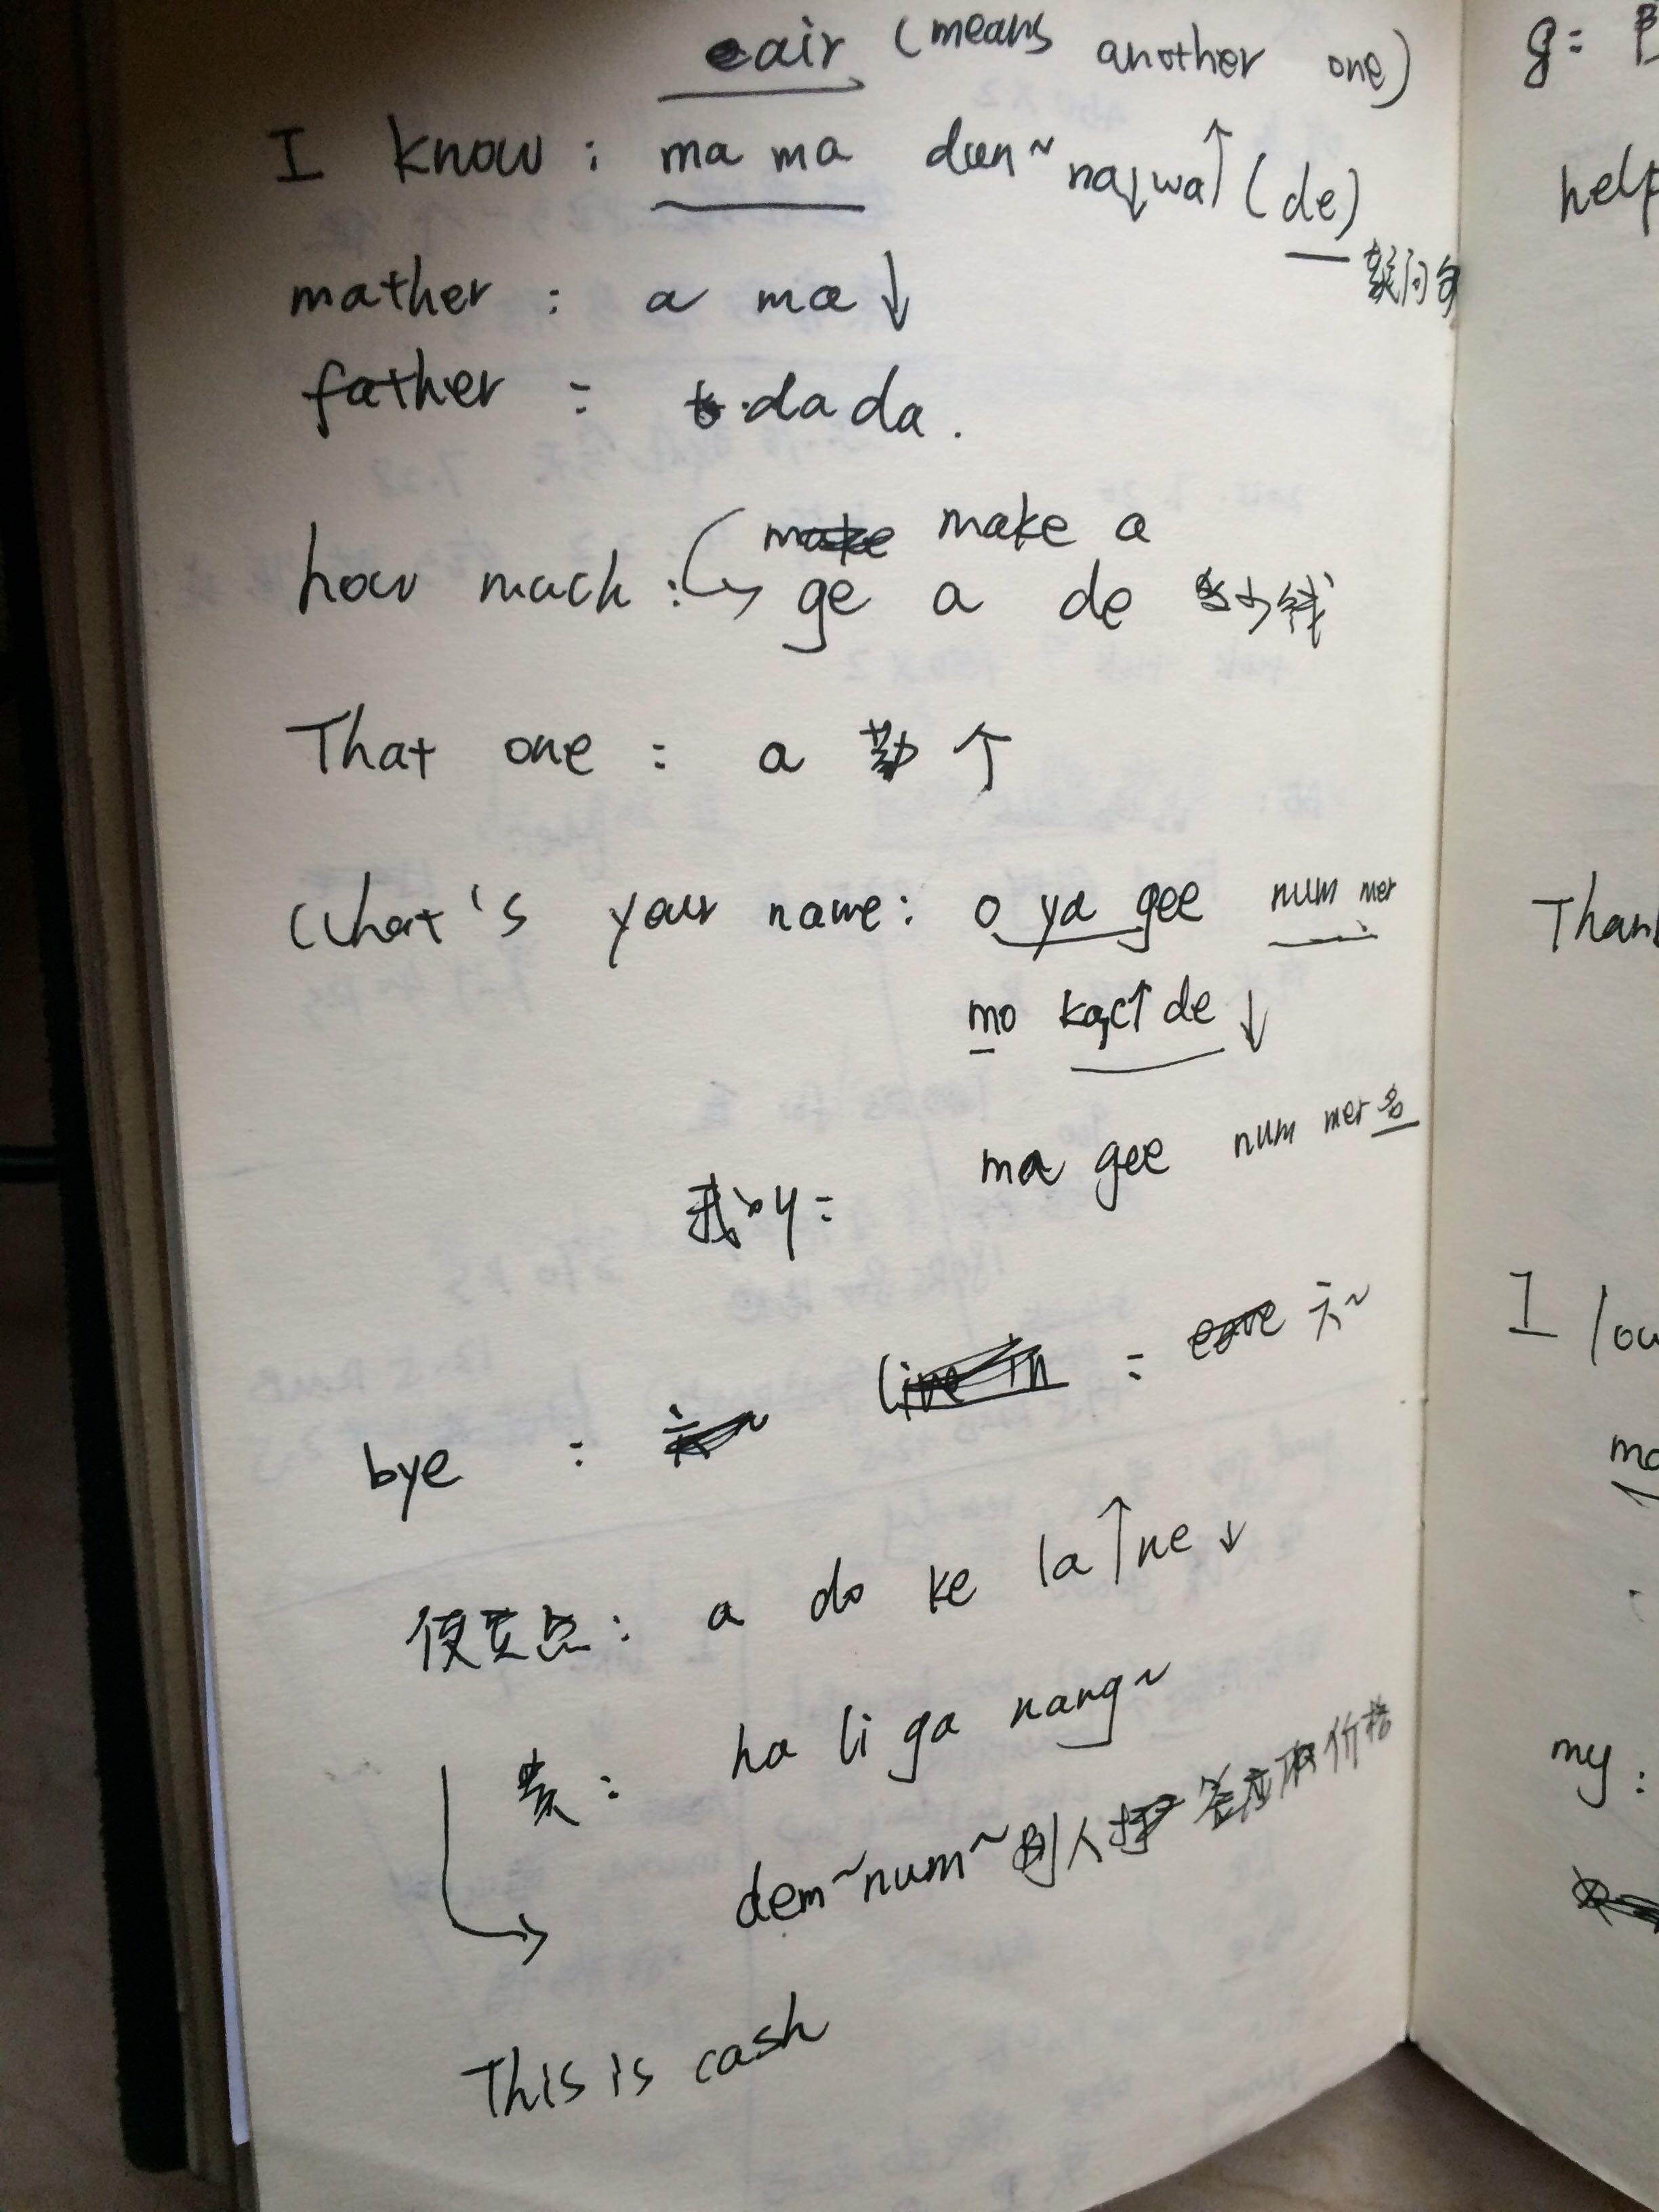 eair (means another one)
I know : ma ma dan~ na↓wa↑ (de)
疑问句
mather : a ma↓
father : dada.
how much : make a
ge a de 多少钱
That one : a 勒 个
What's your name: o ya gee num mer
mo kac↑ de ↓
我叫: ma gee num mer 名
bye : 六~
便宜点: a do ke la↑ne↓
贵: ha li ga nang~
dem~num~ 别人 答应价格
This is cash
g:
help
Than
I lov
my: